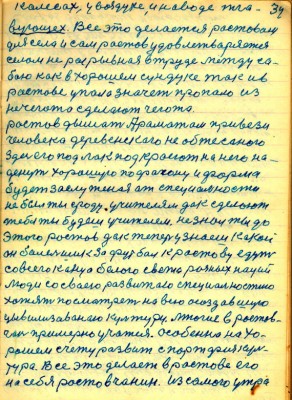 колесах, у воздухе и на воде
34
вугощех. Все это делается ростовам
для села и сам ростов удовлетваряется
селом не разрывная втруде между са-
бою как в хорошем сундуке так и в
ростове упала значет пропало из
нечегото сделают чегота.
ростов дышит Араматам привези
человека деревенскаго не обтесаного
здесего под лак подкрасют на него на-
денут хорошую и форма
будет заслуженая ат специальности
небыл ты сроду учителям дак сделают
тебя ты будеш учителем. не знал ты до
этого ростов дак теперь узнаеш какой
он За футбал к ростову едут
совсего канца белого света разных наций
люди со своего развитаго специальностю
хотят посматрет на всю создавшую
цивилизаваную культуру. многие в ростов-
чан примерно учатся. особенно на хо-
рошем счету развит спорт арая куль-
тура. Все это делает в ростове его
насебя ростовчанин. из самого утра